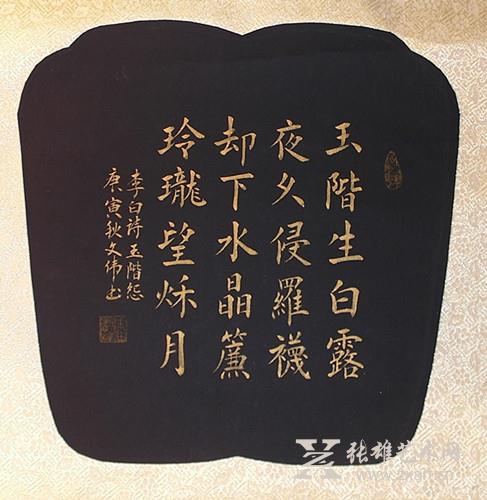 玉階生白露
夜久侵羅襪
却下水晶簾
玲瓏望秌月
李白詩玉階怨
庚寅秋文偉书
张雄艺术网